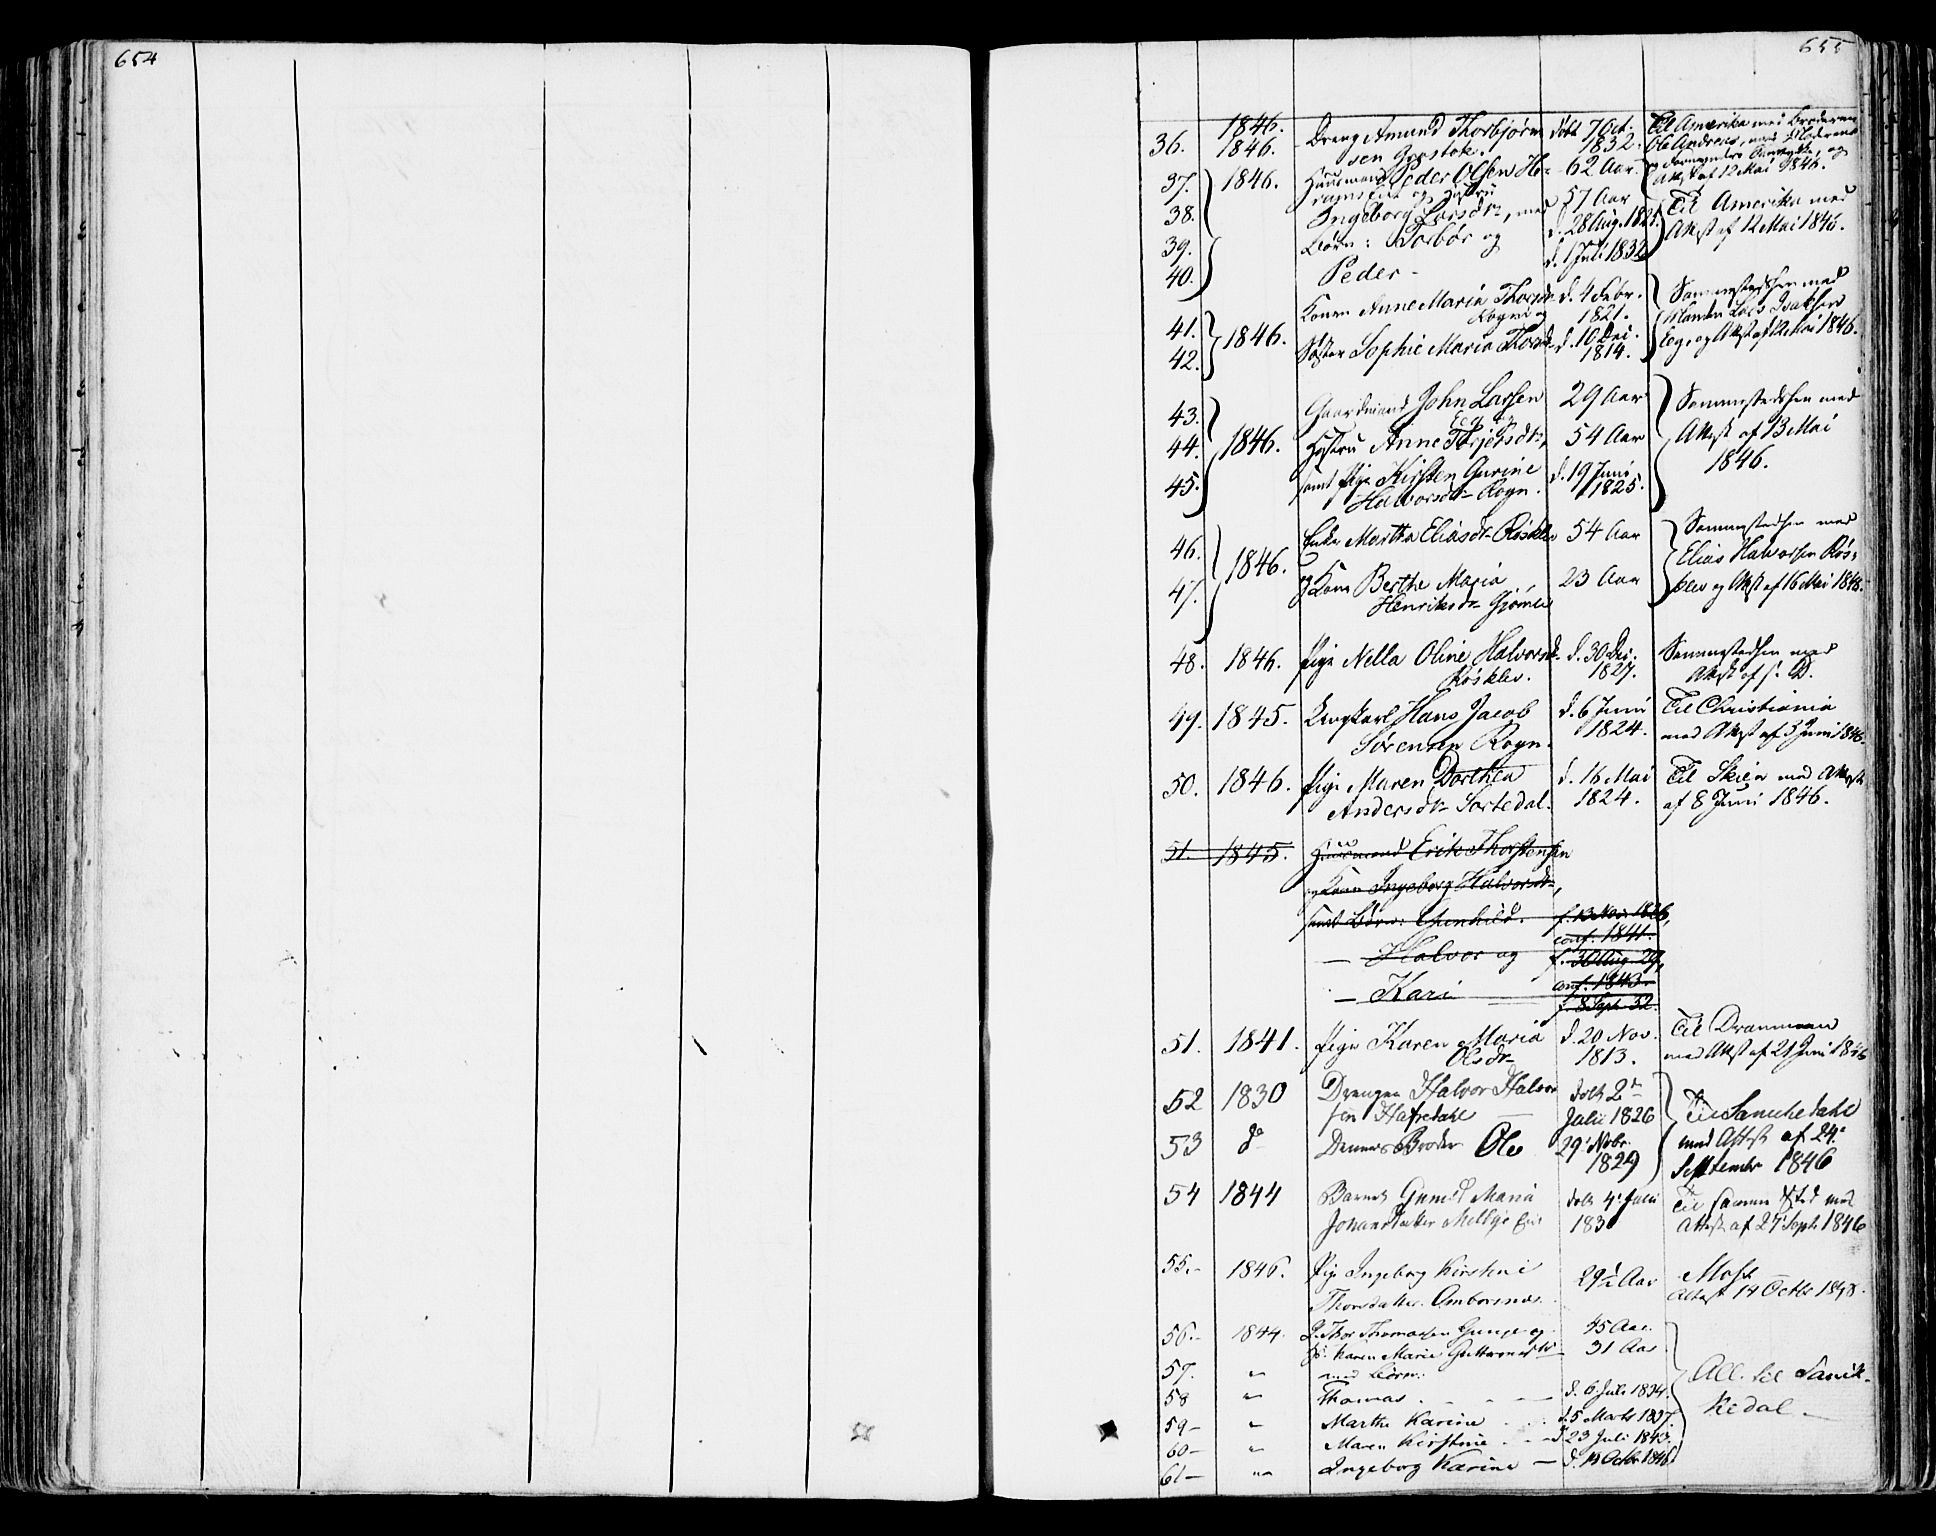 654
655
36. 1846. 1846. Dreng Amund Thorbjörn- döbt 7 Oct. Til Amerika med Broderen
sen 1832. Ole Andreas, med Moderens
og Attest af 12 Mai 1846.
37. 1846. Huusmand Peder Olsen 62 Aar.
og Hustru
38. Ingeborg Larsdr, med 57 Aar Til Amerika med
39. Börn: Torbör og d. 28 Aug. 1821. Attest af 12 Mai 1846.
40. Peder - d. 1 Juli 1832
41. 1846. Konen Anne Maria Thorsdr d. 4 Febr. Sammestedshen med
Rogn og 1821. Manden Lars Isaksen
42. Söster Sophie Maria Thorsdr d. 10 Dec. Eeg, og Attest af 12 Mai 1846.
1814.
43. 1846. Gaardmand John Larsen 29 Aar Sammestedshen med
44. Hustru Anne Terjesdr, 54 Aar Attest af 13 Mai
45. samt Pige Kirsten Gurine d. 19 Juni 1846.
Halvorsdr Rogn. 1825.
46. 1846. Enke Martha Eliasdr Rösklev 54 Aar Sammestedshen med
Elias Halvorsen Rös-
47. og Kone Berthe Maria 23 Aar klev og Attest af 16 Mai 1846.
Henriksdr Gjömle
48. 1846. Pige Nella Oline Halvorsdr d. 30 Dec. Sammestedshen med
Rösklev. 1827. Attest af s. D.
49. 1845. Ungkarl Hans Jacob d. 6 Juni Til Christiania
Sörensen Rogn. 1824. med Attest af 3 Juni 1846.
50. 1846. Pige Maren Dorthea d. 16 Mai Til Skien med Attest
Andersdr Sortedal. 1824. af 8 Juni 1846.
51. 1845. Huusmand Erik Thorstensen
og Kone Ingeborg Halvorsdr,
samt Börn: Gunhild. f. 13 Nov. 1826,
conf. 1841.
— Halvor og f. 30 Aug. 29,
conf. 1843.
— Kari f. 8 Sept. 32.
51. 1841. Pige Karen Maria d. 20 Nov. Til Drammen
Olsdr 1813. med Attest af 21 Juni 1846
52 1830 Drengen Halvor Halvor döbt 2den Til Sannikedahl
sen Hafredahl Julii 1826 med Attest af 24.
53 do Dennes Broder Ole 29 Novbr. September 1846
1829
54 1844 Barnet Maria döbt 4 Julii Til samme Sted med
Johansdatter 183 Attest af 27 Septb 1846
55.- 1846. Pige Ingeborg Kirstine 29½ Aar Moss
Thorsdatter Attest 14 Octbr
56.- 1844. Thor Thomassen og 45 Aar.
Karen Marie 31 Aar
57. " med Börn: All. til Sanik-
58 " Thomas d. 6 Juli 1834. kedal -
59- " Marthe Karine d. 5 Marts 1837.
60- " Maren Kirstine d. 23 Juli 1843.
61- " Ingeborg Karine - d. Octbr 1846